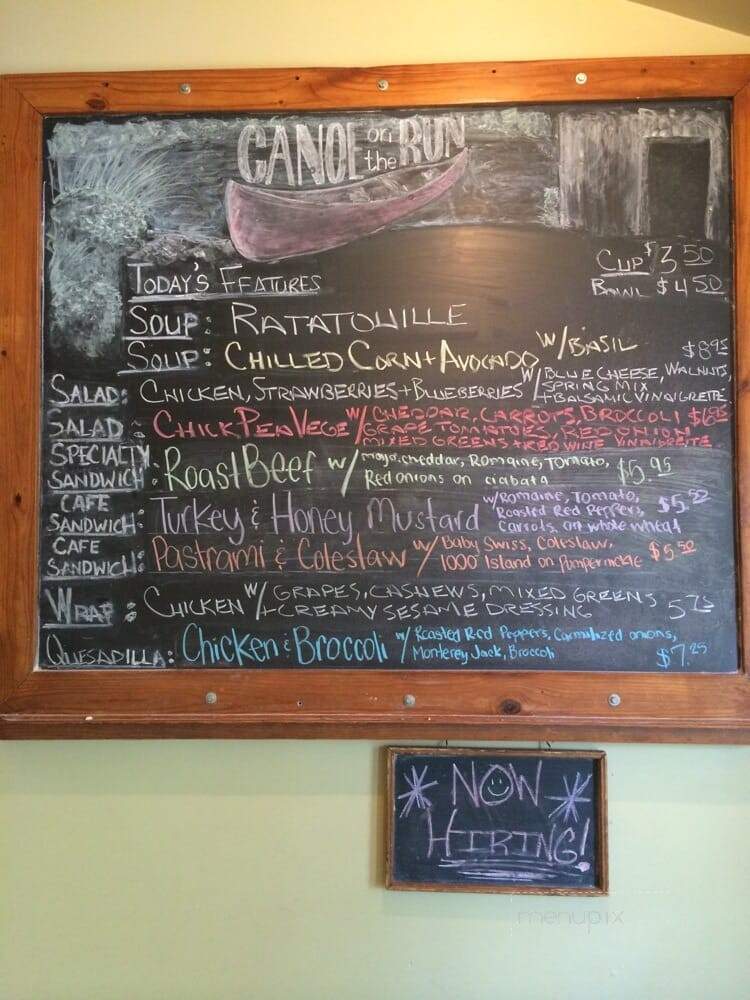 CANOE on the RUN
TODAY'S FEATURES
CUP $3.50
BOWL $4.50
SOUP: RATATOUILLE
SOUP: CHILLED CORN + AVOCADO W/ BASIL
SALAD: CHICKEN, STRAWBERRIES + BLUEBERRIES W/ BLUE CHEESE, WALNUTS, $8.95
SPRING MIX
+ BALSAMIC VINAIGRETTE
SALAD: CHICKPEA VEGE W/ CHEDDAR, CARROTS, BROCCOLI
GRAPE TOMATOES, RED ONION
MIXED GREENS + RED WINE VINAIGRETTE
SPECIALTY SANDWICH: Roast Beef w/ mayo, cheddar, Romaine, Tomato, $5.95
Red onions on ciabata
CAFE SANDWICH: Turkey & Honey Mustard w/ Romaine, Tomato,
Roasted Red Peppers,
Carrots, on whole wheat
CAFE SANDWICH: Pastrami & Coleslaw w/ Baby Swiss, Coleslaw, $5.50
1000 Island on Pumpernickle
WRAP: CHICKEN W/ GRAPES, CASHEWS, MIXED GREENS 5.75
+ CREAMY SESAME DRESSING
QUESADILLA: Chicken & Broccoli w/ Roasted Red Peppers, Carmalized onions,
Monterey Jack, Broccoli $7.25
NOW
HIRING!
menupix